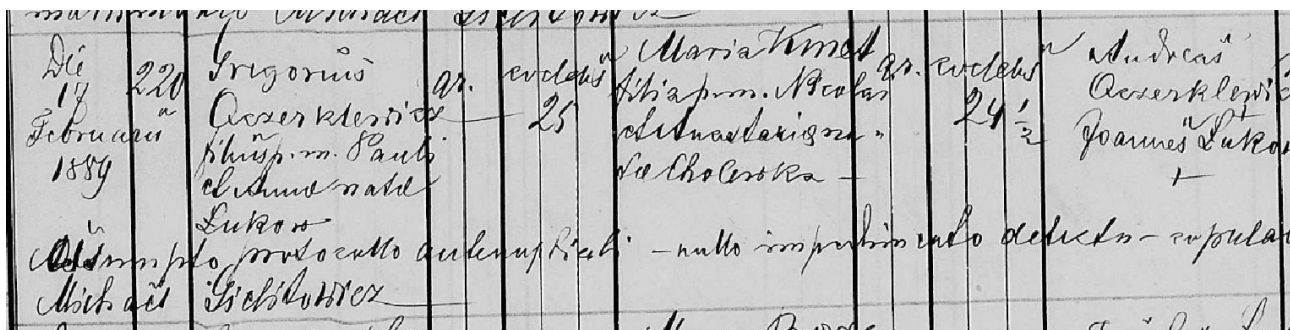 Die 17 Februarii 1889
220
Gregorius Oczerklewicz filius p. m. Pauli et Annae natae Lukow
gr.
coelebs
25
Maria Kmet filia p. m. Nicolai et Anastasia na- tae Cholewka —
gr.
coelebs
24 1/2
Andreas Oczerklewic
Joannes Lukow
+
Assumpto protocollo antenuptiali — nullo impedimento detecto — copulav
Michaël